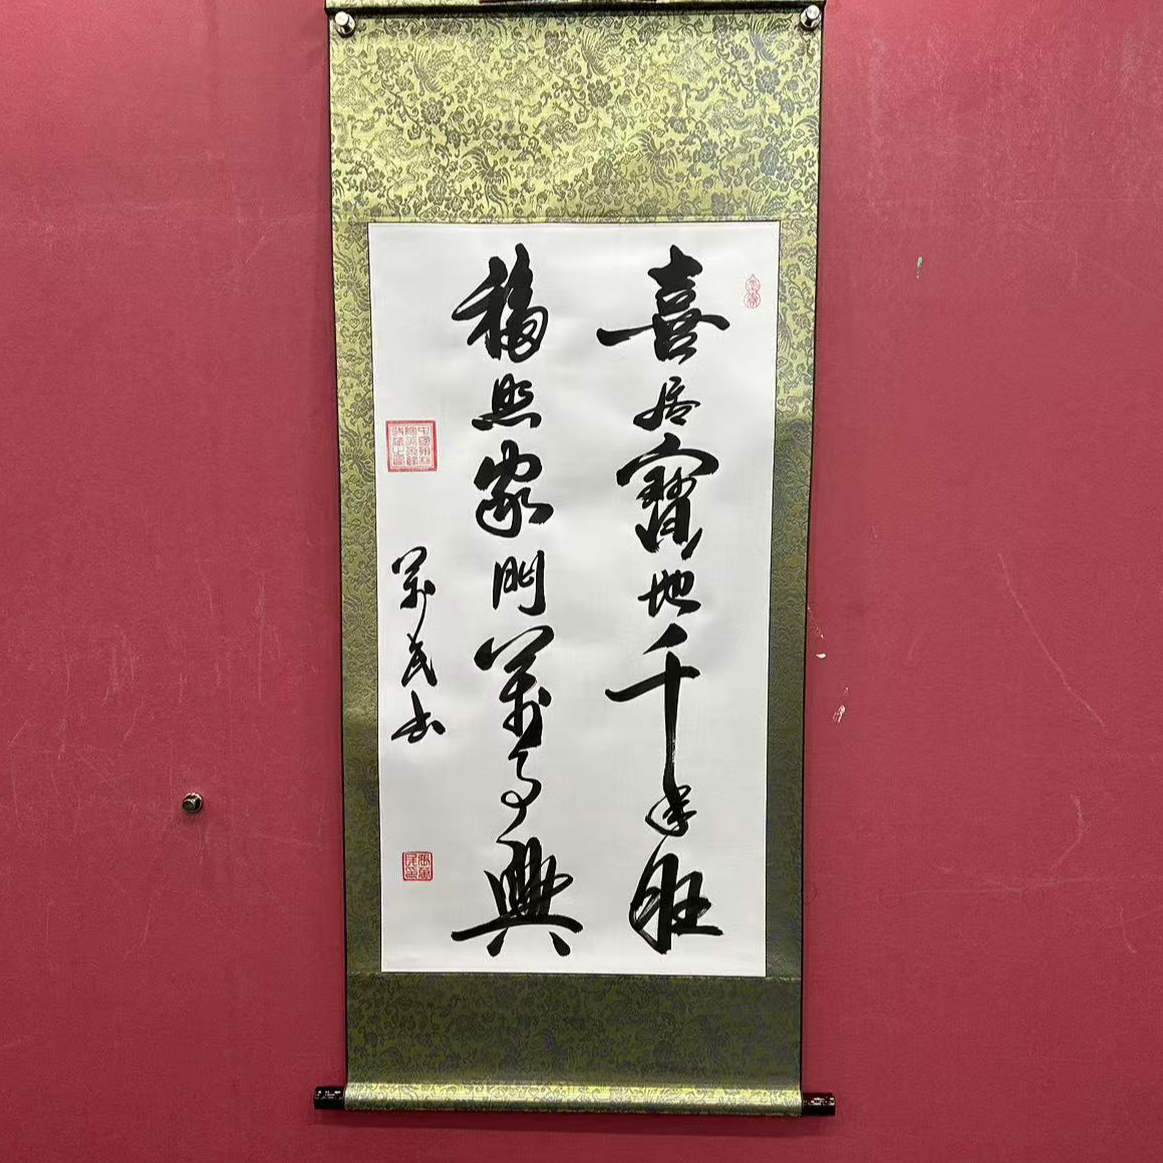 喜居寶地千年旺
福照家門萬事興
萬民书